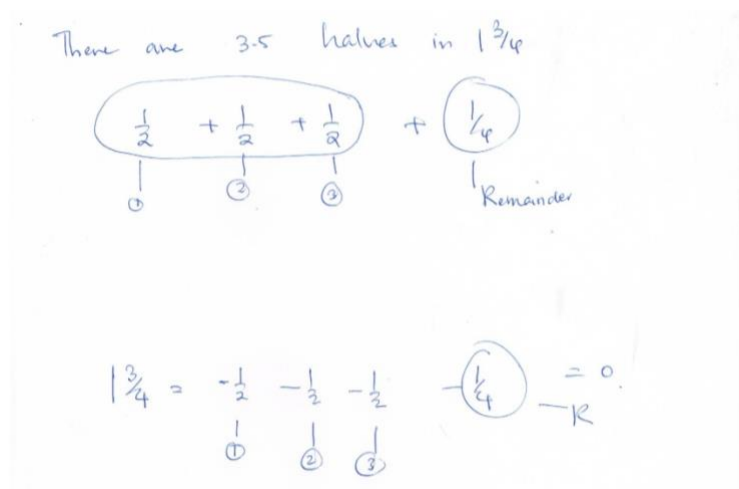 There are 3.5 halves in 1 3/4
1/2 + 1/2 + 1/2 + 1/4
① ② ③ Remainder
1 3/4 = - 1/2 - 1/2 - 1/2 - 1/4 = 0.
① ② ③ - R